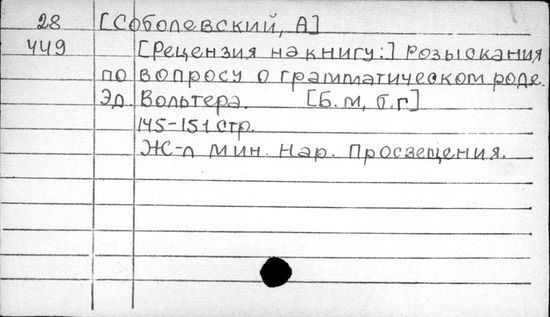 28 [Соболевский, А]
449 [Рецензия на книгу:] Розыскания
по вопросу о грамматическом роде.
Эд. Вольтера. [Б.м, б.г]
145-151 стр.
Ж-л Мин. Нар. Просвещения.